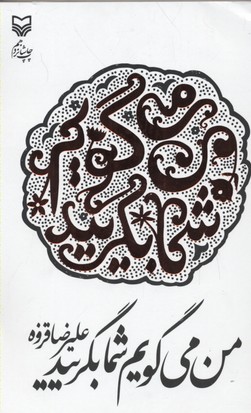 چاپ
من می گویم
شما بگریید
علیرضا قزوه
من می گویم شما بگریید